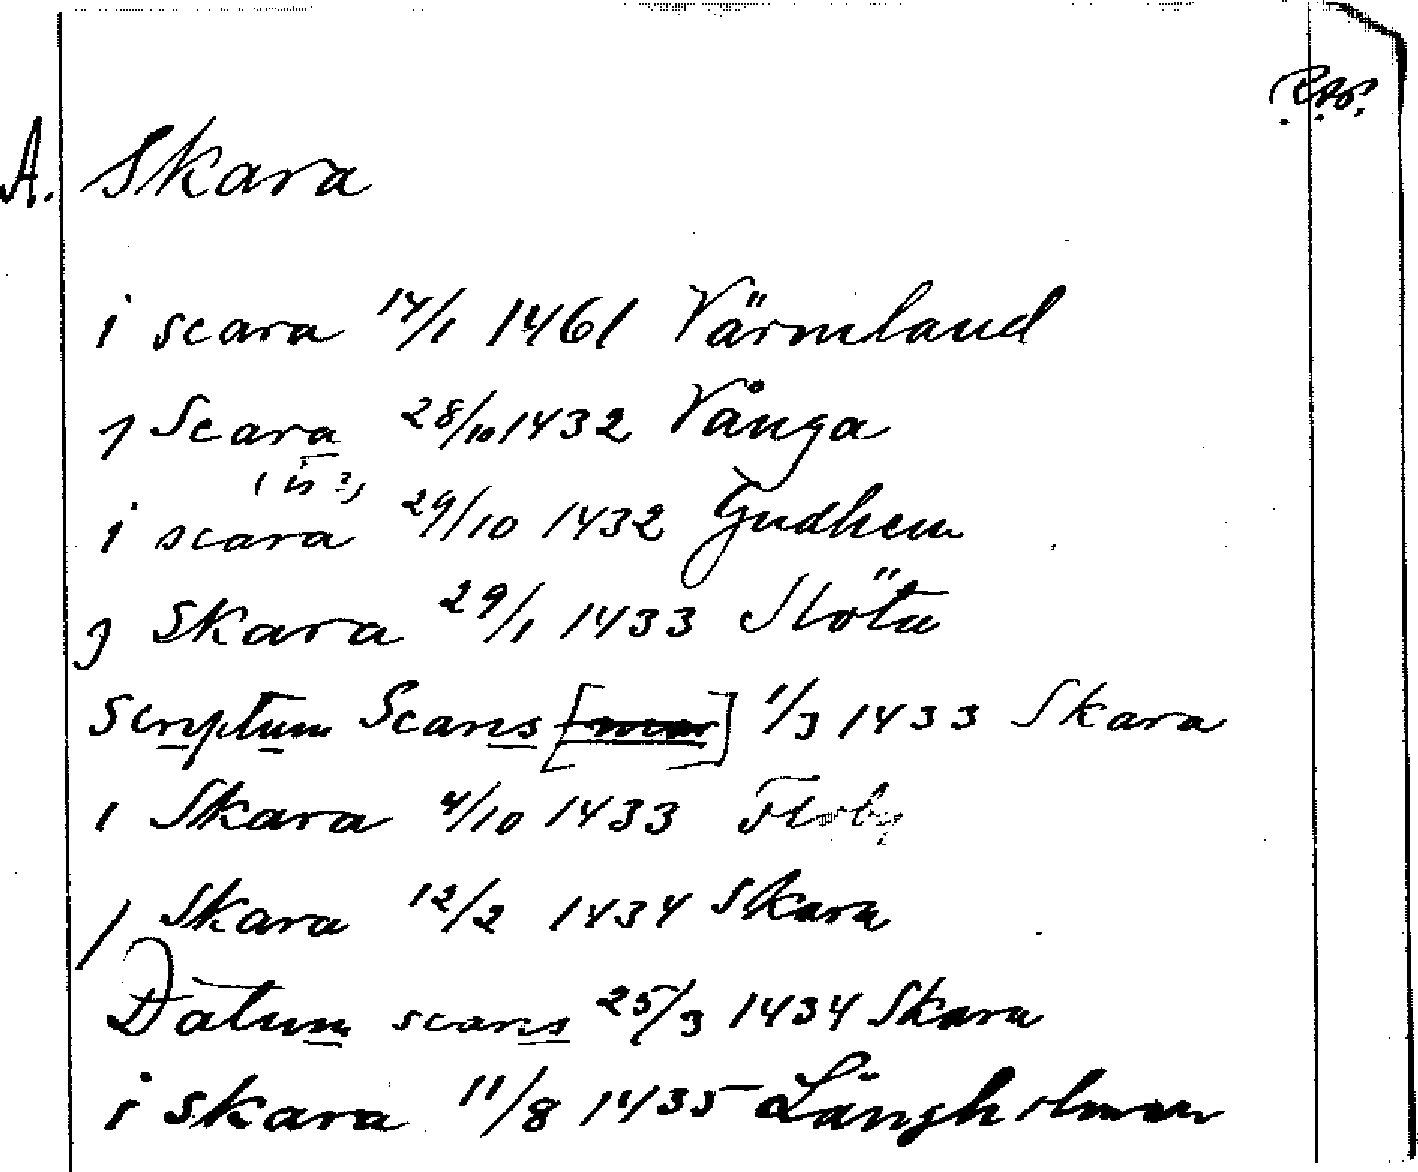 A. Skara
i scara 14/1 1461 Värmland
j Scara 28/10 1432 Vånga
(is?)
i scara 29/10 1432 Gudhem
j Skara 29/1 1433 Slöta
Scriptum Scaris [] 1/3 1433 Skara
i Skara 4/10 1433 Floby
j Skara 12/2 1434 Skara
Datum scaris 25/3 1434 Skara
i skara 11/8 1435 Långholmen